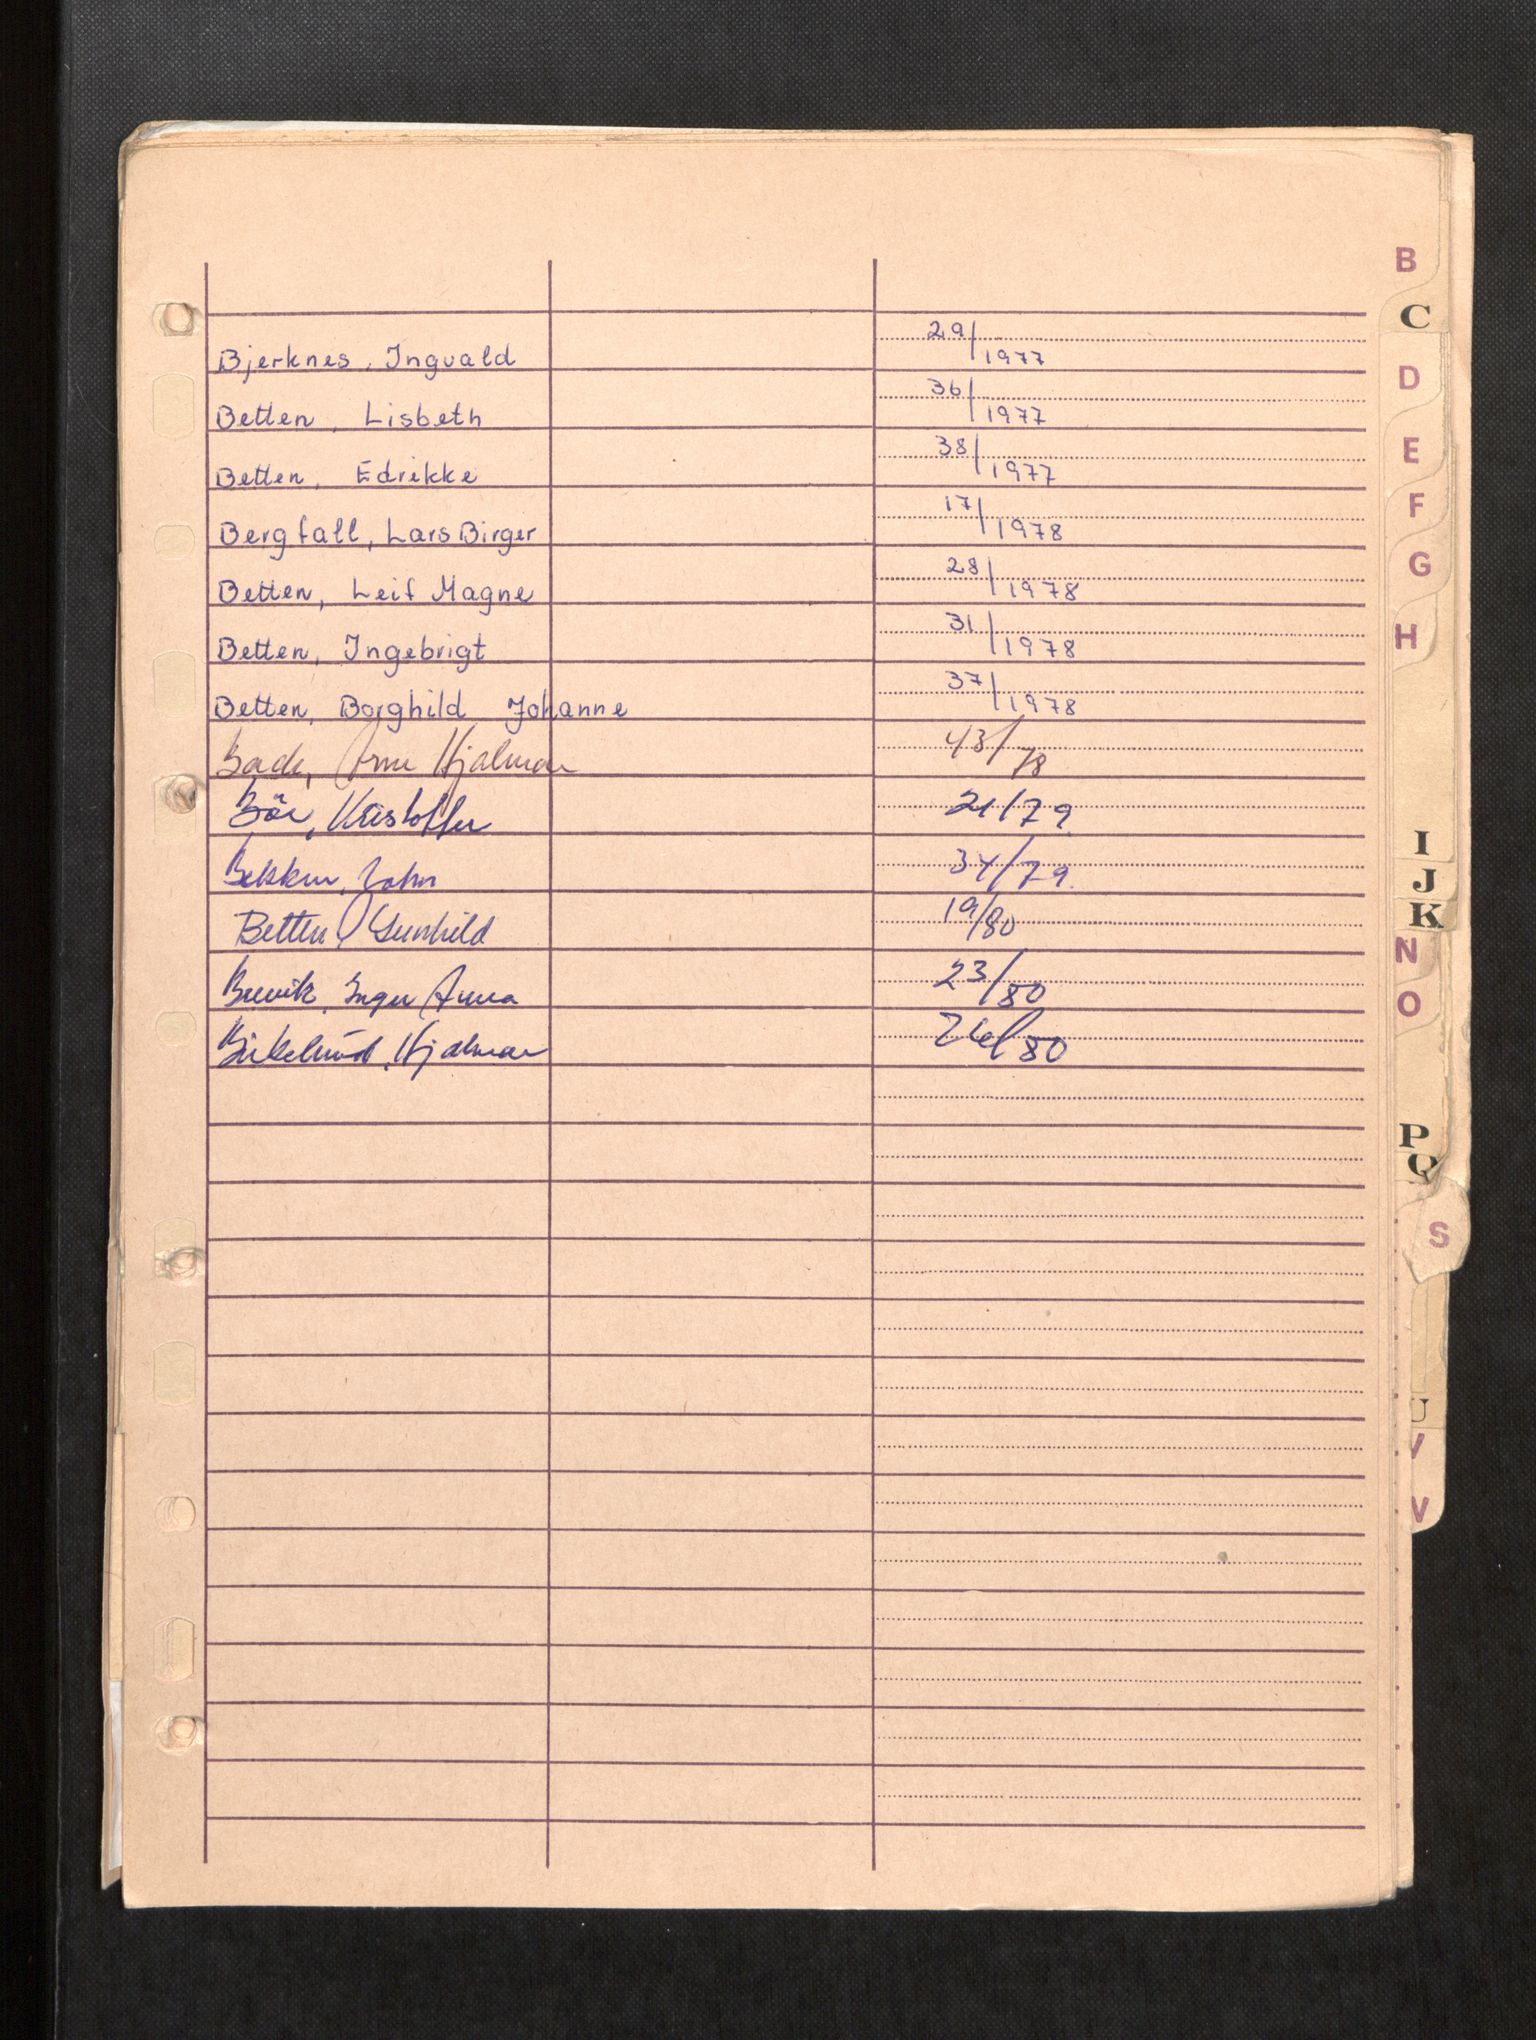 Bjerknes, Ingvald 29/1977
Betten, Lisbeth 36/1977
Betten, Edrikke 38/1977
Bergfall, Lars Birger 17/1978
Betten, Leif Magne 28/1978
Betten, Ingebrigt 31/1978
Betten, Borghild Johanne 37/1978
Hjalmar 43/78
Kristoffer 21/79
34/79
Betten, Gunhild 19/80
Brevik, Inger Anna 23/80
Birkelund, Hjalmar 26/80
B
C
D
E
F
G
H
I
J
K
N
O
P
Q
S
U
V